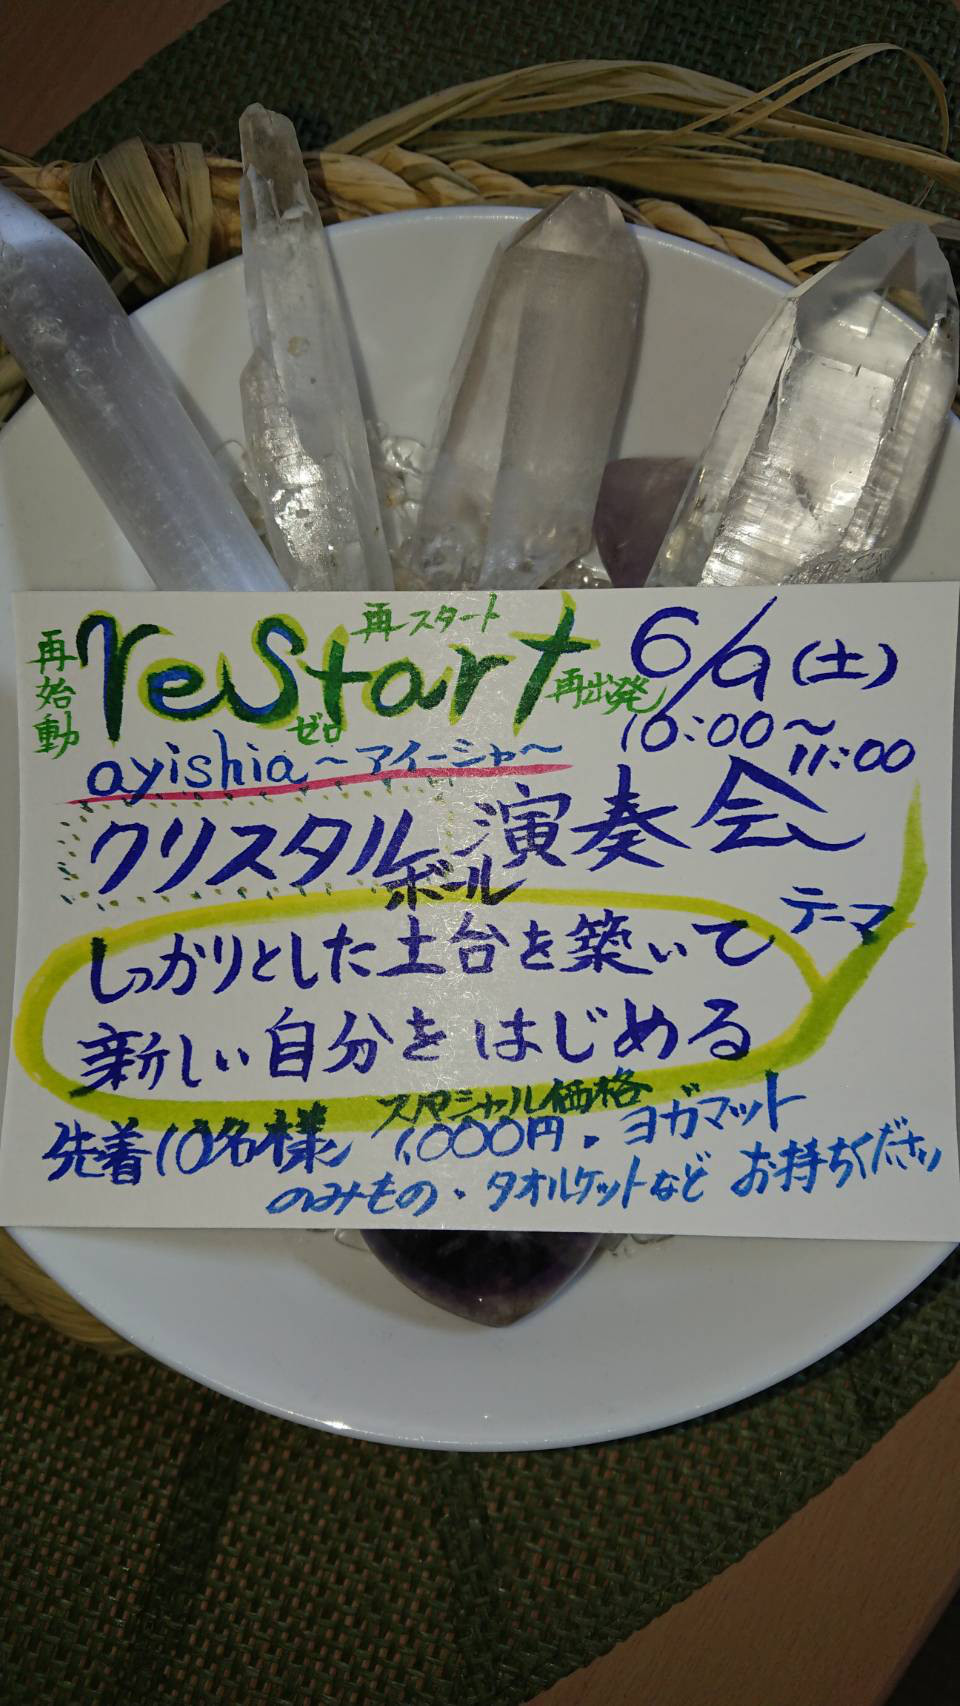 再始動
reStart
再スタート
ゼロ
再出発
6/9(土)
10:00〜
11:00
ayishia〜アイーシャ〜
クリスタルボール演奏会
テーマ
しっかりとした土台を築いて
新しい自分をはじめる
スペシャル価格
先着10名様 1,000円。ヨガマット
のみもの・タオルケットなど お持ちください